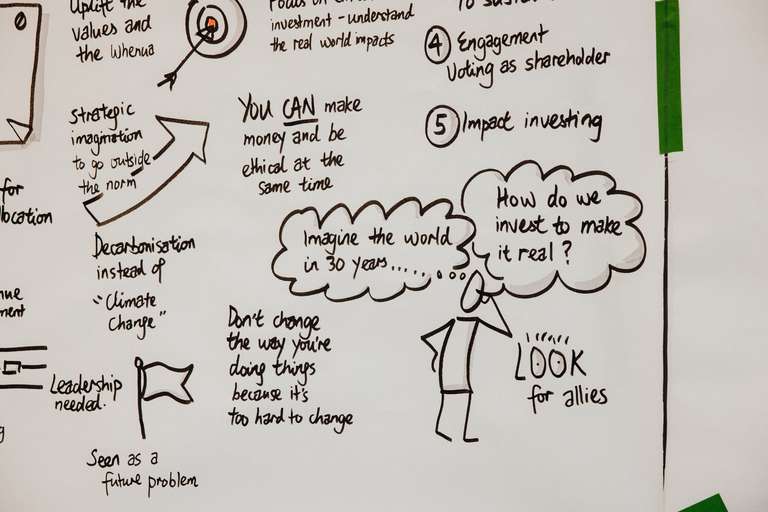 Uplift the
values and
the whenua
Focus on
investment - understand
the real world impacts
4 Engagement
Voting as shareholder
5 Impact investing
Strategic
imagination
to go outside
the norm
YOU CAN make
money and be
ethical at the
same time
for
location
Decarbonisation
instead of
"Climate
Change"
Imagine the world
in 30 years......
How do we
invest to make
it real?
Don't change
the way you're
doing things
because it's
too hard to change
LOOK
for allies
Leadership
needed.
Seen as a
future problem